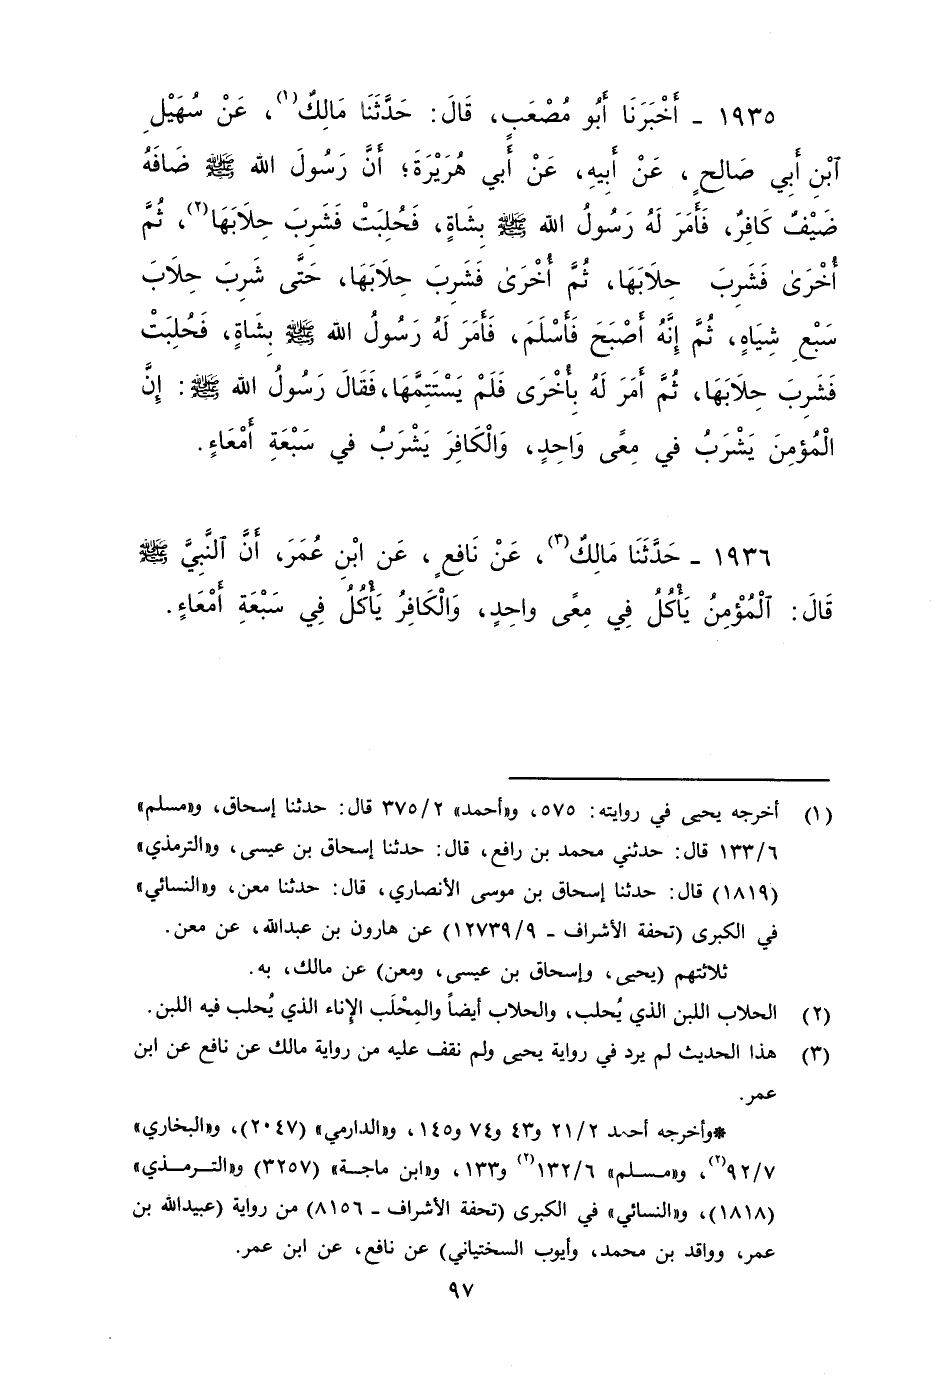 ١٩٣٥ ـ أَخْبَرَنَا أَبُو مُصْعَبٍ، قَالَ: حَدَّثَنَا مَالِكٌ(١)، عَنْ سُهَيْلِ
ٱبْنِ أَبِي صَالِحٍ، عَنْ أَبِيهِ، عَنْ أَبي هُرَيْرَةَ؛ أَنَّ رَسُولَ الله ﷺ ضَافَهُ
ضَيْفٌ كَافِرٌ، فَأَمَرَ لَهُ رَسُولُ الله ﷺ بِشَاةٍ، فَحُلِبَتْ فَشَرِبَ حِلَابَهَا(٢)، ثُمَّ
أُخْرَىٰ فَشَرِبَ حِلَابَهَا، ثُمَّ أُخْرَىٰ فَشَرِبَ حِلَابَهَا، حَتَّى شَرِبَ حِلَابَ
سَبْعِ شِيَاهٍ، ثُمَّ إِنَّهُ أَصْبَحَ فَأَسْلَمَ، فَأَمَرَ لَهُ رَسُولُ الله ﷺ بِشَاةٍ، فَحُلِبَتْ
فَشَرِبَ حِلَابَهَا، ثُمَّ أَمَرَ لَهُ بِأُخْرَى فَلَمْ يَسْتَتِمَّهَا، فَقَالَ رَسُولُ الله ﷺ: إِنَّ
الْمُؤمِنَ يَشْرَبُ في مِعًى وَاحِدٍ، وَالْكَافِرَ يَشْرَبُ في سَبْعَةِ أَمْعَاءٍ.
١٩٣٦ ـ حَدَّثَنَا مَالِكٌ(٣)، عَنْ نَافِعٍ، عَن ابْنِ عُمَرَ، أَنَّ ٱلنَّبِيَّ ﷺ
قَالَ: ٱلْمُؤْمِنُ يَأْكُلُ فِي مِعًى واحِدٍ، وَالْكَافِرُ يَأْكُلُ فِي سَبْعَةِ أَمْعَاءٍ.
(١) أخرجه يحيى في روايته: ٥٧٥، و«أحمد» ٣٧٥/٢ قال: حدثنا إسحاق، و«مسلم»
١٣٣/٦ قال: حدثني محمد بن رافع، قال: حدثنا إسحاق بن عيسى، و«الترمذي»
(١٨١٩) قال: حدثنا إسحاق بن موسى الأنصاري، قال: حدثنا معن، و«النسائي»
في الكبرى (تحفة الأشراف ـ ١٢٧٣٩/٩) عن هارون بن عبدالله، عن معن.
ثلاثتهم (يحيى، وإسحاق بن عيسى، ومعن) عن مالك، به.
(٢) الحلاب اللبن الذي يُحلب، والحلاب أيضاً والمِحْلَب الإناء الذي يُحلب فيه اللبن.
(٣) هذا الحديث لم يرد في رواية يحيى ولم نقف عليه من رواية مالك عن نافع عن ابن
عمر.
*وأخرجه أحمد ٢١/٢ و٤٣ و٧٤ و١٤٥، و«الدارمي» (٢٠٤٧)، و«البخاري»
٩٢/٧(٢)، و«مسلم» ١٣٢/٦(٢) و١٣٣، و«ابن ماجة» (٣٢٥٧) و«الترمذي»
(١٨١٨)، و«النسائي» في الكبرى (تحفة الأشراف ـ ٨١٥٦) من رواية (عبيدالله بن
عمر، وواقد بن محمد، وأيوب السختياني) عن نافع، عن ابن عمر.
٩٧